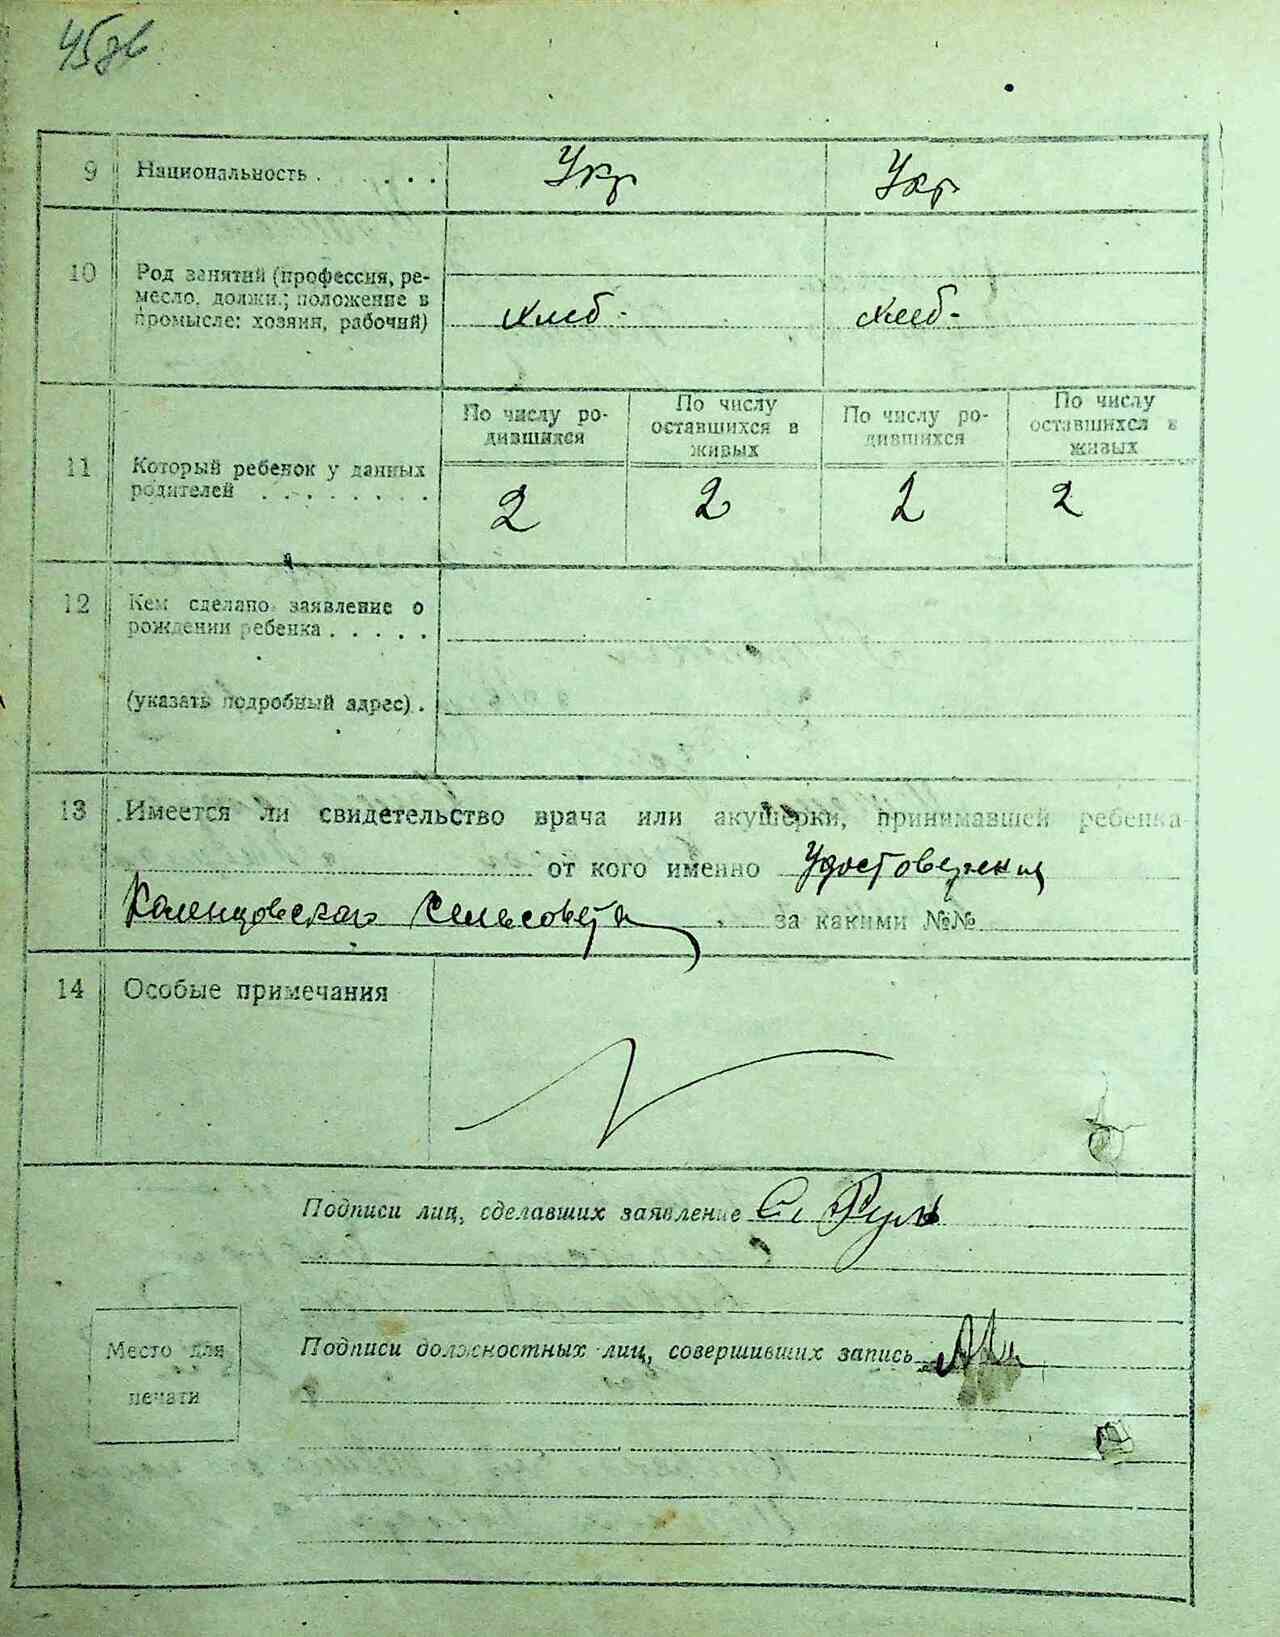 45об
9 Национальность . . . . . Укр Укр
10 Род занятий (профессия, ре-
месло, должн.; положение в
промысле: хозяин, рабочий) хлеб- хлеб-
По числу ро-
дившихся
По числу
оставшихся в
живых
По числу ро-
дившихся
По числу
оставшихся в
живых
11 Который ребенок у данных
родителей . . . . . . . . 2 2 2 2
12 Кем сделано заявление о
рождении ребенка . . . . .
(указать подробный адрес) .
13 Имеется ли свидетельство врача или акушерки, принимавшей ребенка
от кого именно Удостоверения
Сельсовета, за какими №№
14 Особые примечания
Подписи лиц, сделавших заявление С. Руль
Подписи должностных лиц, совершивших запись
Место для
печати